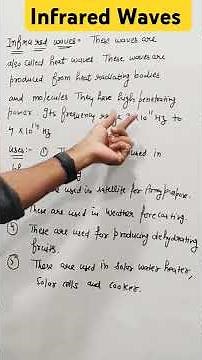 Infrared Waves
Infrared waves - These waves are
also called heat waves These waves are
produced from heat radiating bodies
and molecules They have high penetrating
power. Its frequency 10¹¹ Hz to
4 × 10¹⁴ Hz
Uses:- ① used in
are used in satellite for Army purpose.
These are used in weather forecasting.
④ These are used for producing dehydrating
fruits.
⑤ These are used in solar water heater,
Solar cells and cooker.